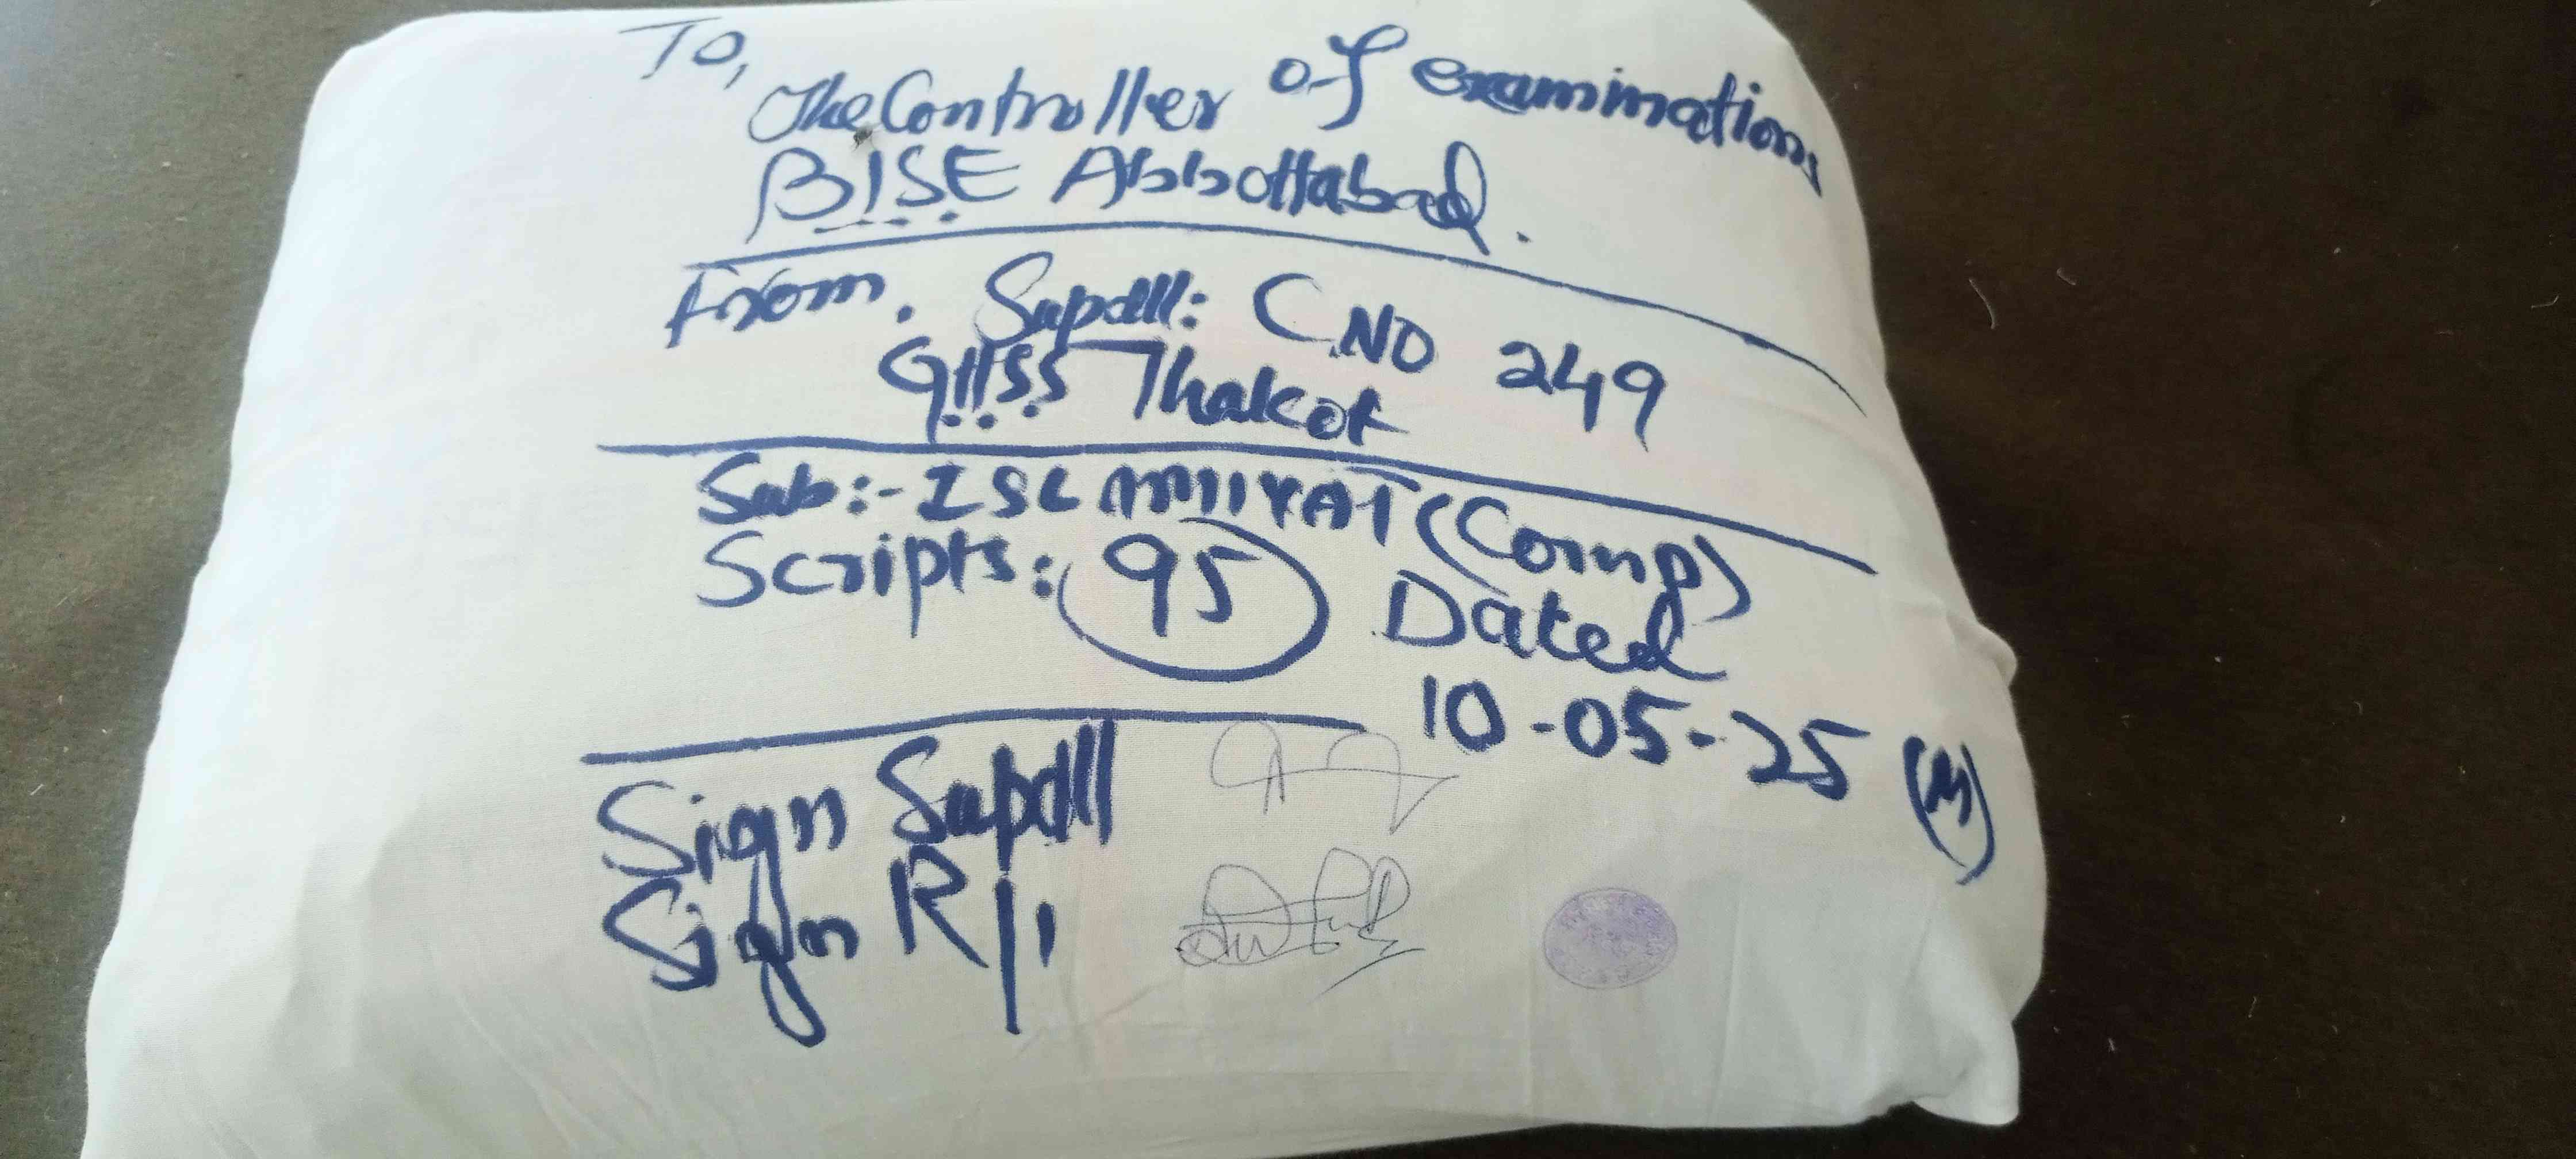 To,
The Controller of examination,
B.I.S.E Abbottabad.
From. Supdtt: C.NO 249
G.H.S.S Thakot
Sub:- ISLAMIYAT (Comp)
Scripts: 95 Dated
10-05-25 (M)
Sign Supdtt
Sign R/I